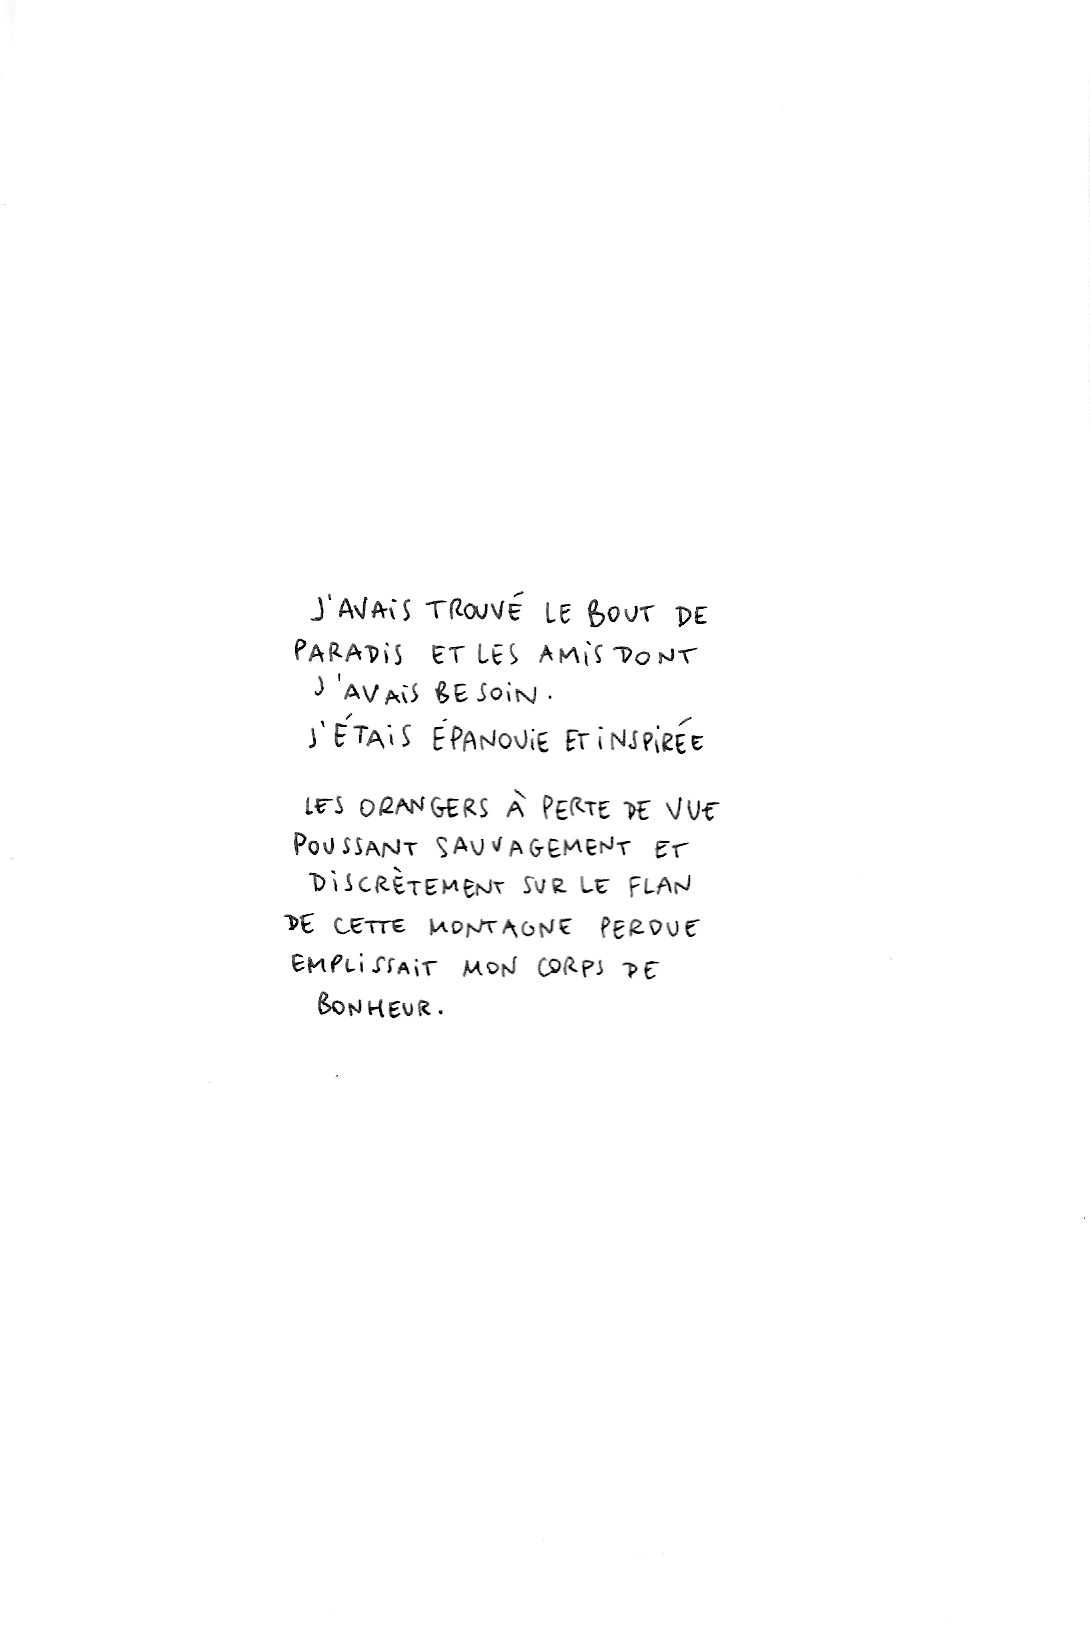 J'AVAIS TROUVÉ LE BOUT DE
PARADIS ET LES AMIS DONT
J'AVAIS BESOIN.
J'ÉTAIS ÉPANOUIE ET INSPIRÉE
LES ORANGERS À PERTE DE VUE
POUSSANT SAUVAGEMENT ET
DISCRÈTEMENT SUR LE FLAN
DE CETTE MONTAGNE PERDUE
EMPLISSAIT MON CORPS DE
BONHEUR.